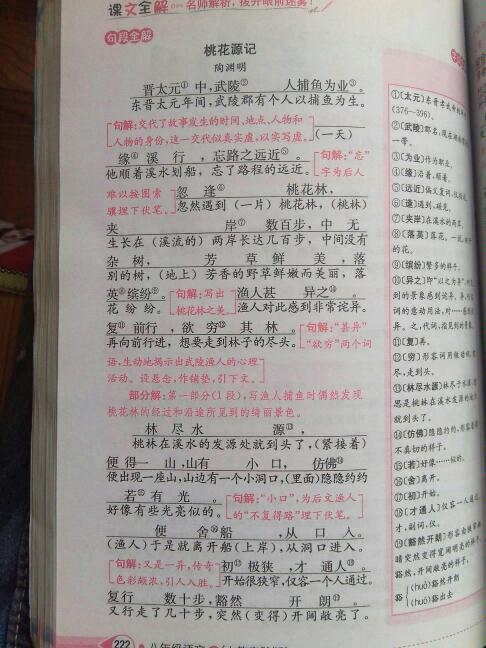 课文全解 名师解析，拨开眼前迷雾！
句段全解
桃花源记
陶渊明
晋太元① 中,武陵② 人捕鱼为业③。
东晋太元年间,武陵郡有个人以捕鱼为生。
句解:交代了故事发生的时间、地点、人物和
人物的身份,这一交代似真实虚,以实写虚。
(一天)
缘④ 溪 行 ,忘路之远近⑤。
他顺着溪水划船,忘了路程的远近。
句解:“忘”
字为后人
难以按图索
骥埋下伏笔。
忽 逢⑥ 桃花林,
忽然遇到(一片)桃花林,(桃林)
夹 岸⑦ 数百步,中 无
生长在(溪流的)两岸长达几百步,中间没有
杂 树, 芳 草 鲜 美 ,落
别的树,(地上)芳香的野草鲜嫩而美丽,落
英⑧缤纷⑨。
花 纷 纷。
句解:写出
桃花林之美。
渔人甚 异之⑩。
渔人对此感到非常诧异。
复⑪ 前行 ,欲 穷⑫ 其 林。
再向前行进,想要走到林子的尽头。
句解:“甚异”
“欲穷”两个词
语,生动地揭示出武陵渔人的心理
活动。设悬念,作铺垫,引下文。
部分解:第一部分(1段),写渔人捕鱼时偶然发现
桃花林的经过和沿途所见到的绮丽景色。
林 尽 水 源⑬ ,
桃林在溪水的发源处就到头了,(紧接着)
便 得一 山,山有 小 口, 仿佛⑭
便出现一座山,山边有一个小洞口,(里面)隐隐约约
若⑮ 有 光 。
好像有些光亮似的。
句解:“小口”,为后文渔人
的“不复得路”埋下伏笔。
便 舍⑯船 ,从 口 入。
(渔人)于是就离开船(上岸),从洞口进入。
句解:又是一异,传奇
色彩颇浓,引人入胜。
初⑰ 极狭 ,才 通人⑱。
开始很狭窄,仅容一个人通过。
复行 数十步,豁然 开 朗⑲。
又行走了几十步,突然(变得)开阔敞亮了。
222 八年级语文
①〔太元〕东晋孝武帝
(376—396)。
②〔武陵〕郡名,
一带。
③〔为业〕作为职业。
④〔缘〕沿着,顺着。
⑤〔远近〕偏义复词,
⑥〔逢〕遇到,碰见。
⑦〔夹岸〕在溪水的两岸。
⑧〔落英〕落花。一说,
的花。
⑨〔缤纷〕繁多的样子。
⑩〔异之〕即“以之为异”,
到的景象感到诧异。
词的意动用法,
异。之,代词,
⑪〔复〕再。
⑫〔穷〕形容词用做动词,
尽,走到头。
⑬〔林尽水源〕林尽于水源,
思是桃林在溪水发源的
就到头了。
⑭〔仿佛〕隐隐约约,形容
不真切的样子。
⑮〔若〕好像……似的。
⑯〔舍〕离开。
⑰〔初〕开始。
⑱〔才通人〕仅容一人通过。
才,副词,仅。
⑲〔豁然开朗〕形容由
暗突然变得宽阔明亮的样子。
然,开阔敞亮的样子。
豁
(huò)豁然开朗
(huō)豁出去